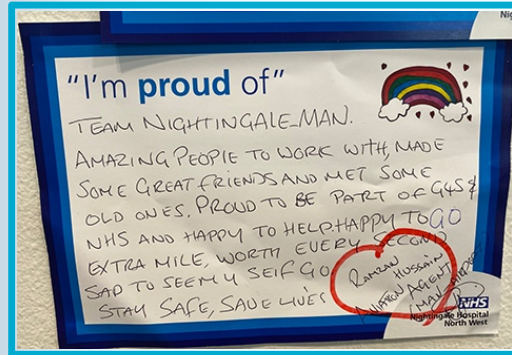 Nig
"I'm proud of"
TEAM NIGHTINGALE-MAN.
AMAZING PEOPLE TO WORK WITH, MADE
SOME GREAT FRIENDS AND MET SOME
OLD ONES. PROUD TO BE PART OF G4S &
NHS AND HAPPY TO HELP. HAPPY TO GO
EXTRA MILE, WORTH EVERY SECOND
SAD TO SEE MY SELF GO
STAY SAFE, SAVE LIVES
RAMZAN
HUSSAIN
AVIATION AGENT
MAN AIRPORT
NHS
Nightingale Hospital
North West